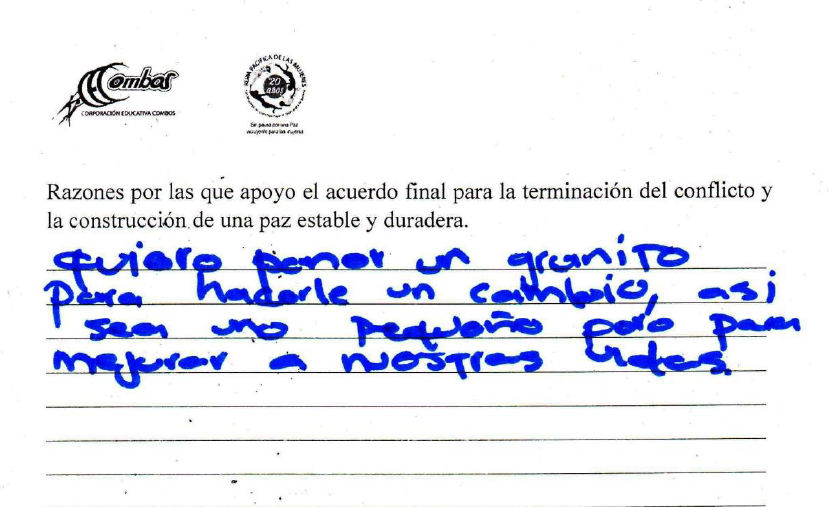 Combos
CORPORACIÓN EDUCATIVA COMBOS
RUTA PACÍFICA DE LAS MUJERES
20
años
Razones por las que apoyo el acuerdo final para la terminación del conflicto y
la construcción de una paz estable y duradera.
quiero poner un granito
para hacerle un cambio, asi
sea uno pequeño pero para
mejorar a nuestras vidas.